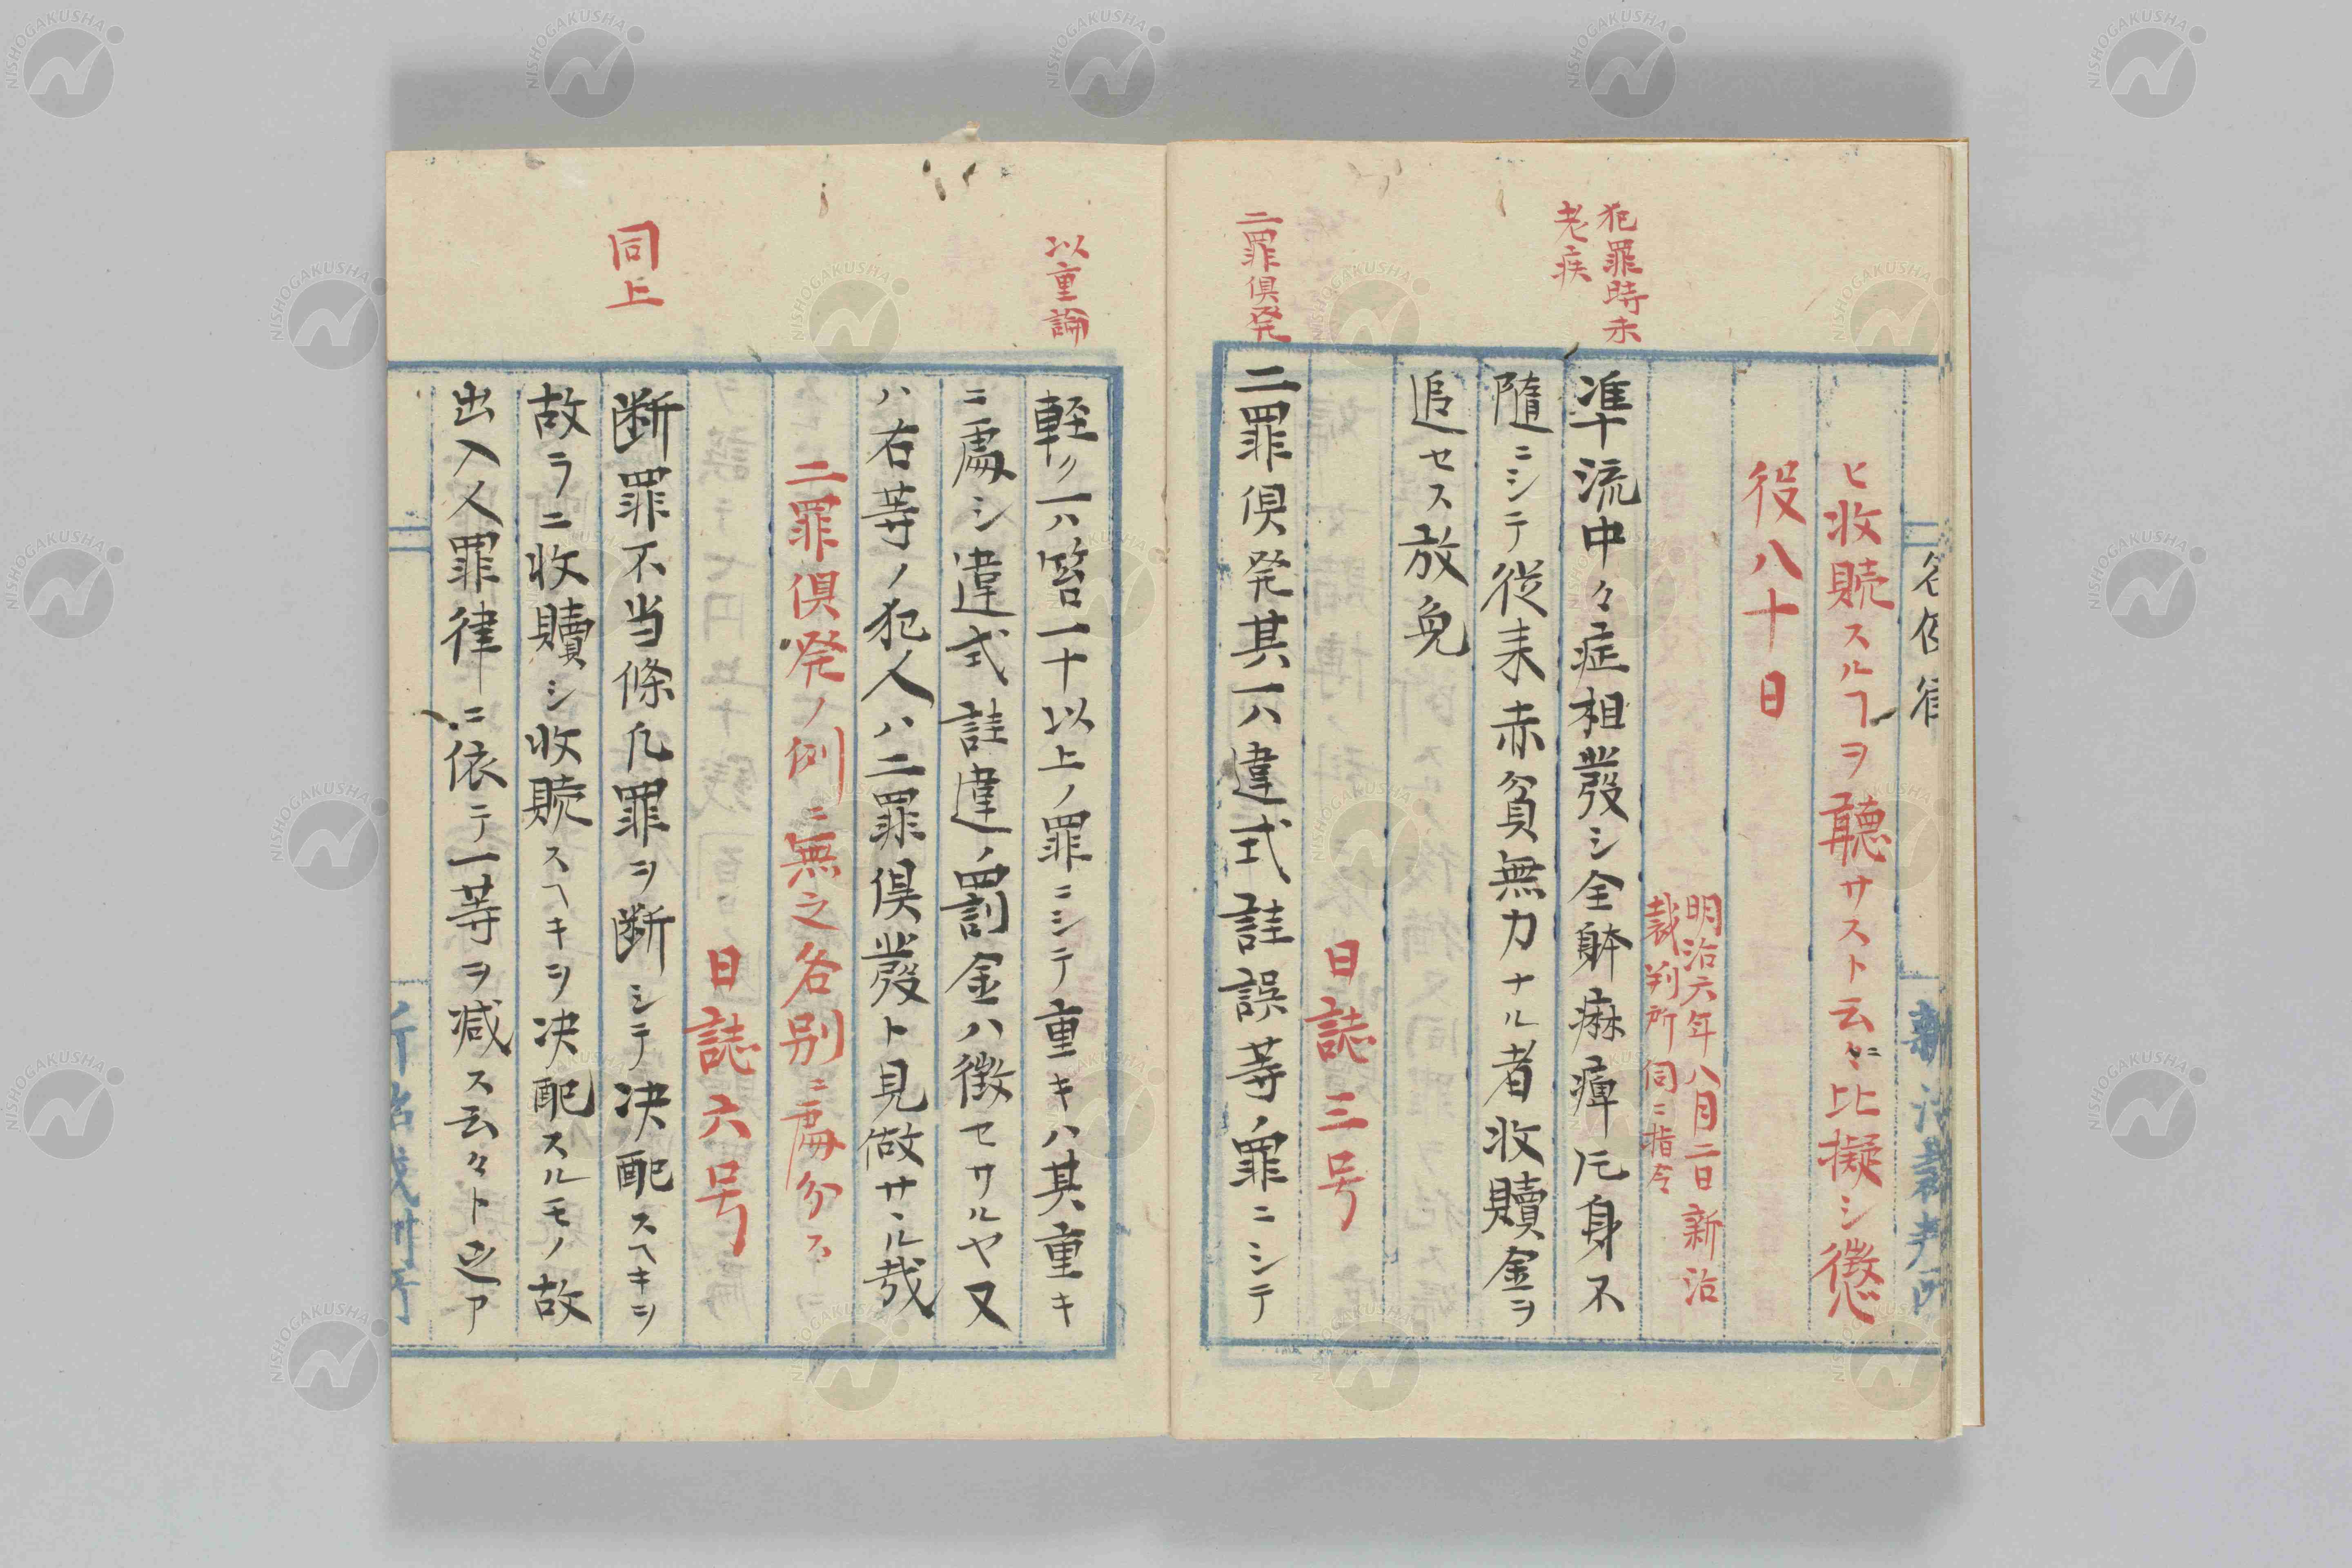 名例律
新治裁判所
ヒ收贖スルヿヲ聽サスト云々ニ比擬シ懲
役八十日
明治六年八月二日新治
裁判所伺ニ指令
犯罪時未
老疾
準流中々症相發シ全躰痳痺凡身不
隨ニシテ従来赤貧無力ナル者收贖金ヲ
追セス放免
日誌三号
二罪倶発
二罪倶発其一ハ違式詿誤等ノ罪ニシテ
以重論
軽ク一ハ笞一十以上ノ罪ニシテ重キハ其重キ
ニ處シ違式詿違ノ罰金ハ徴セサルヤ又
ハ右等ノ犯人ハ二罪倶發ト見做サヽル哉
二罪倶発ノ例ニ無之各別ニ處分ス
日誌六号
同上
断罪不当條凡罪ヲ断シテ决配スヘキヲ
故ラニ收贖シ收贖スヘキヲ决配スルモノ故
出入人罪律ニ依テ一等ヲ減ス云々ト之ア
新治裁判所
NISHOGAKUSHA